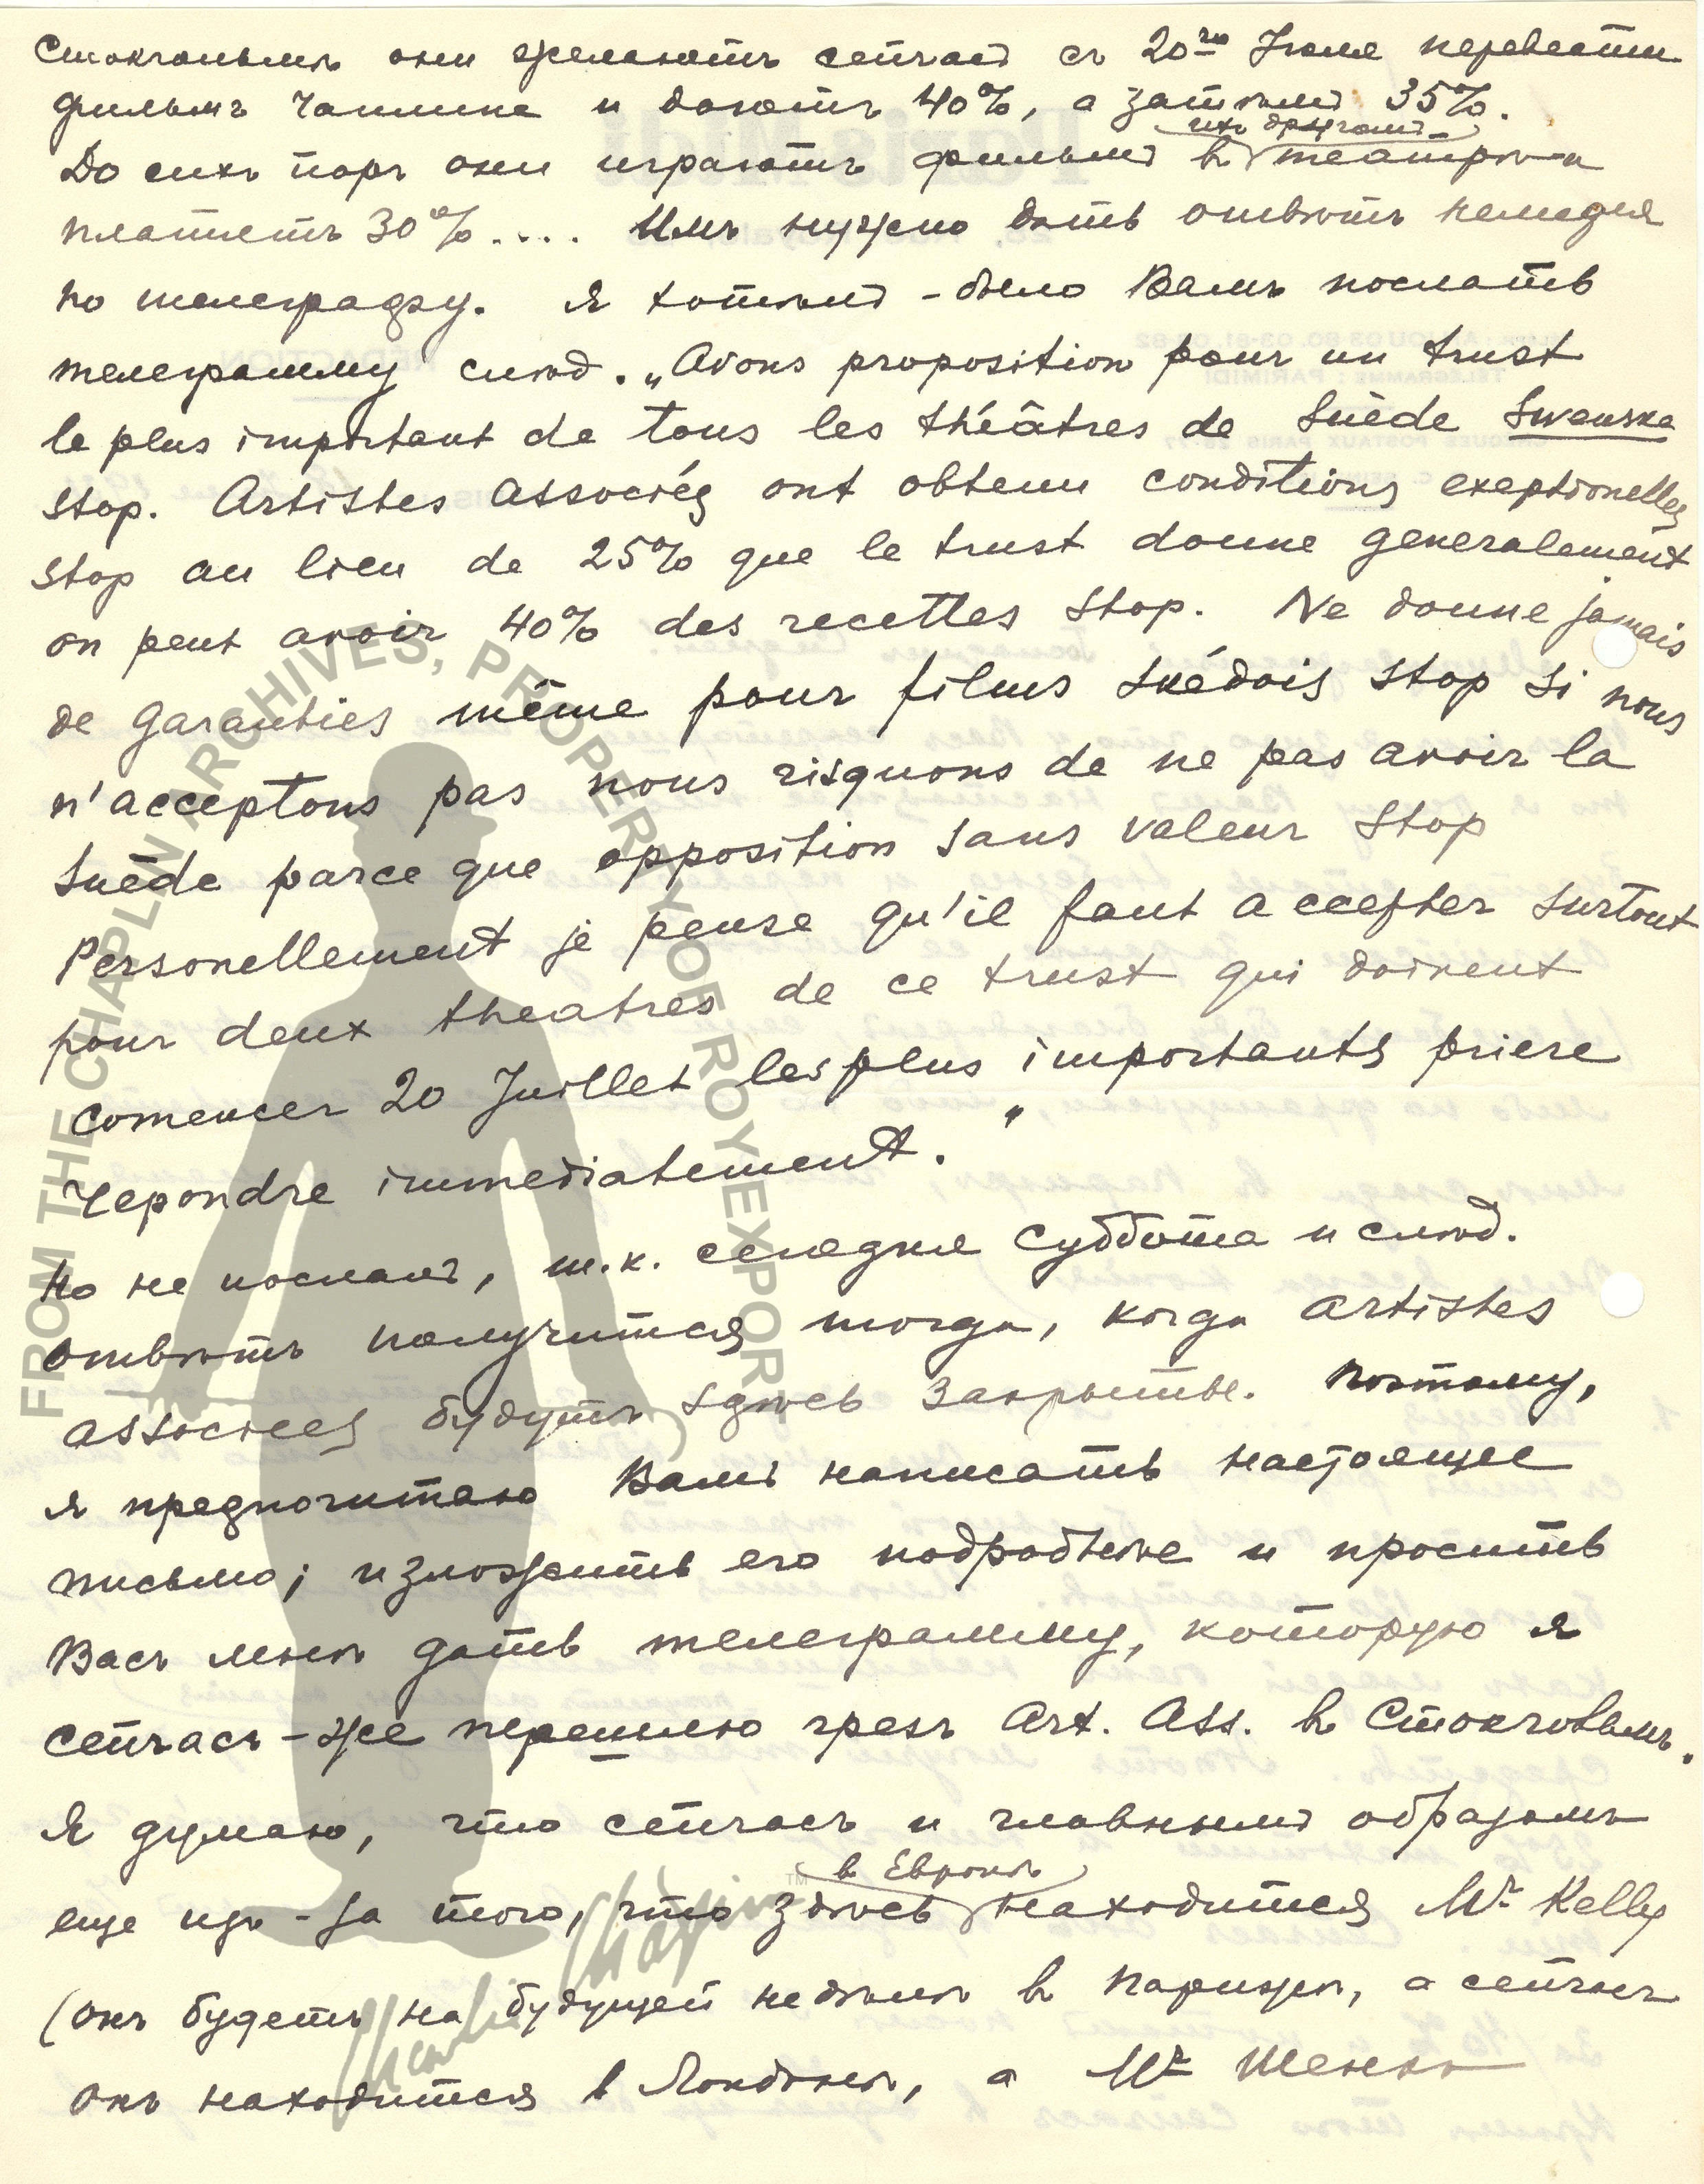 Стокгольмъ они желаютъ сейчасъ съ 20го Июля перевести
фильмъ Чаплина и даютъ 40%, а затѣмъ 35%.
ихъ другомъ
До сихъ поръ они играютъ фильмъ въ театрѣ и
платятъ 30%.... Имъ нужно дать отвѣтъ немедля
по телеграфу. Я хотѣлъ-было Вамъ послать
телеграмму слѣд. „Avons proposition pour un trust
le plus important de tous les théâtres de Suède Swenska
Stop. Artistes Associés ont obtenu conditions exeptionelles
Stop au lieu de 25% que le trust donne generalement
on peut avoir 40% des recettes Stop. Ne donne jamais
de garanties même pour films suédois Stop si nous
n'acceptons pas nous risquons de ne pas avoir la
Suède parce que opposition sans valeur Stop
Personellement je pense qu'il faut accepter surtout
pour deux theatres de ce trust qui doivent
comencer 20 Juillet les plus importants priere
repondre immediatement."
Но не послалъ, т.к. сегодня суббота и слѣд.
отвѣтъ получится тогда, когда Artistes
Associees будутъ здѣсь закрыты. Поэтому,
я предпочитаю Вамъ написать настоящее
письмо; изложить его подробнѣе и просить
Васъ мнѣ дать телеграмму, которую я
сейчасъ-же перешлю чрезъ Art. Ass. въ Стокгольмъ.
Я думаю, что сейчасъ и главнымъ образомъ
в Европѣ
еще изъ-за того, что здѣсь находится Mr Kelly
(онъ будетъ на будущей недѣлѣ в Парижѣ, а сейчасъ
онъ находится в Лондонѣ, а Mr Шенкъ
FROM THE CHAPLIN ARCHIVES, PROPERTY OF ROY EXPORT
Charlie Chaplin TM